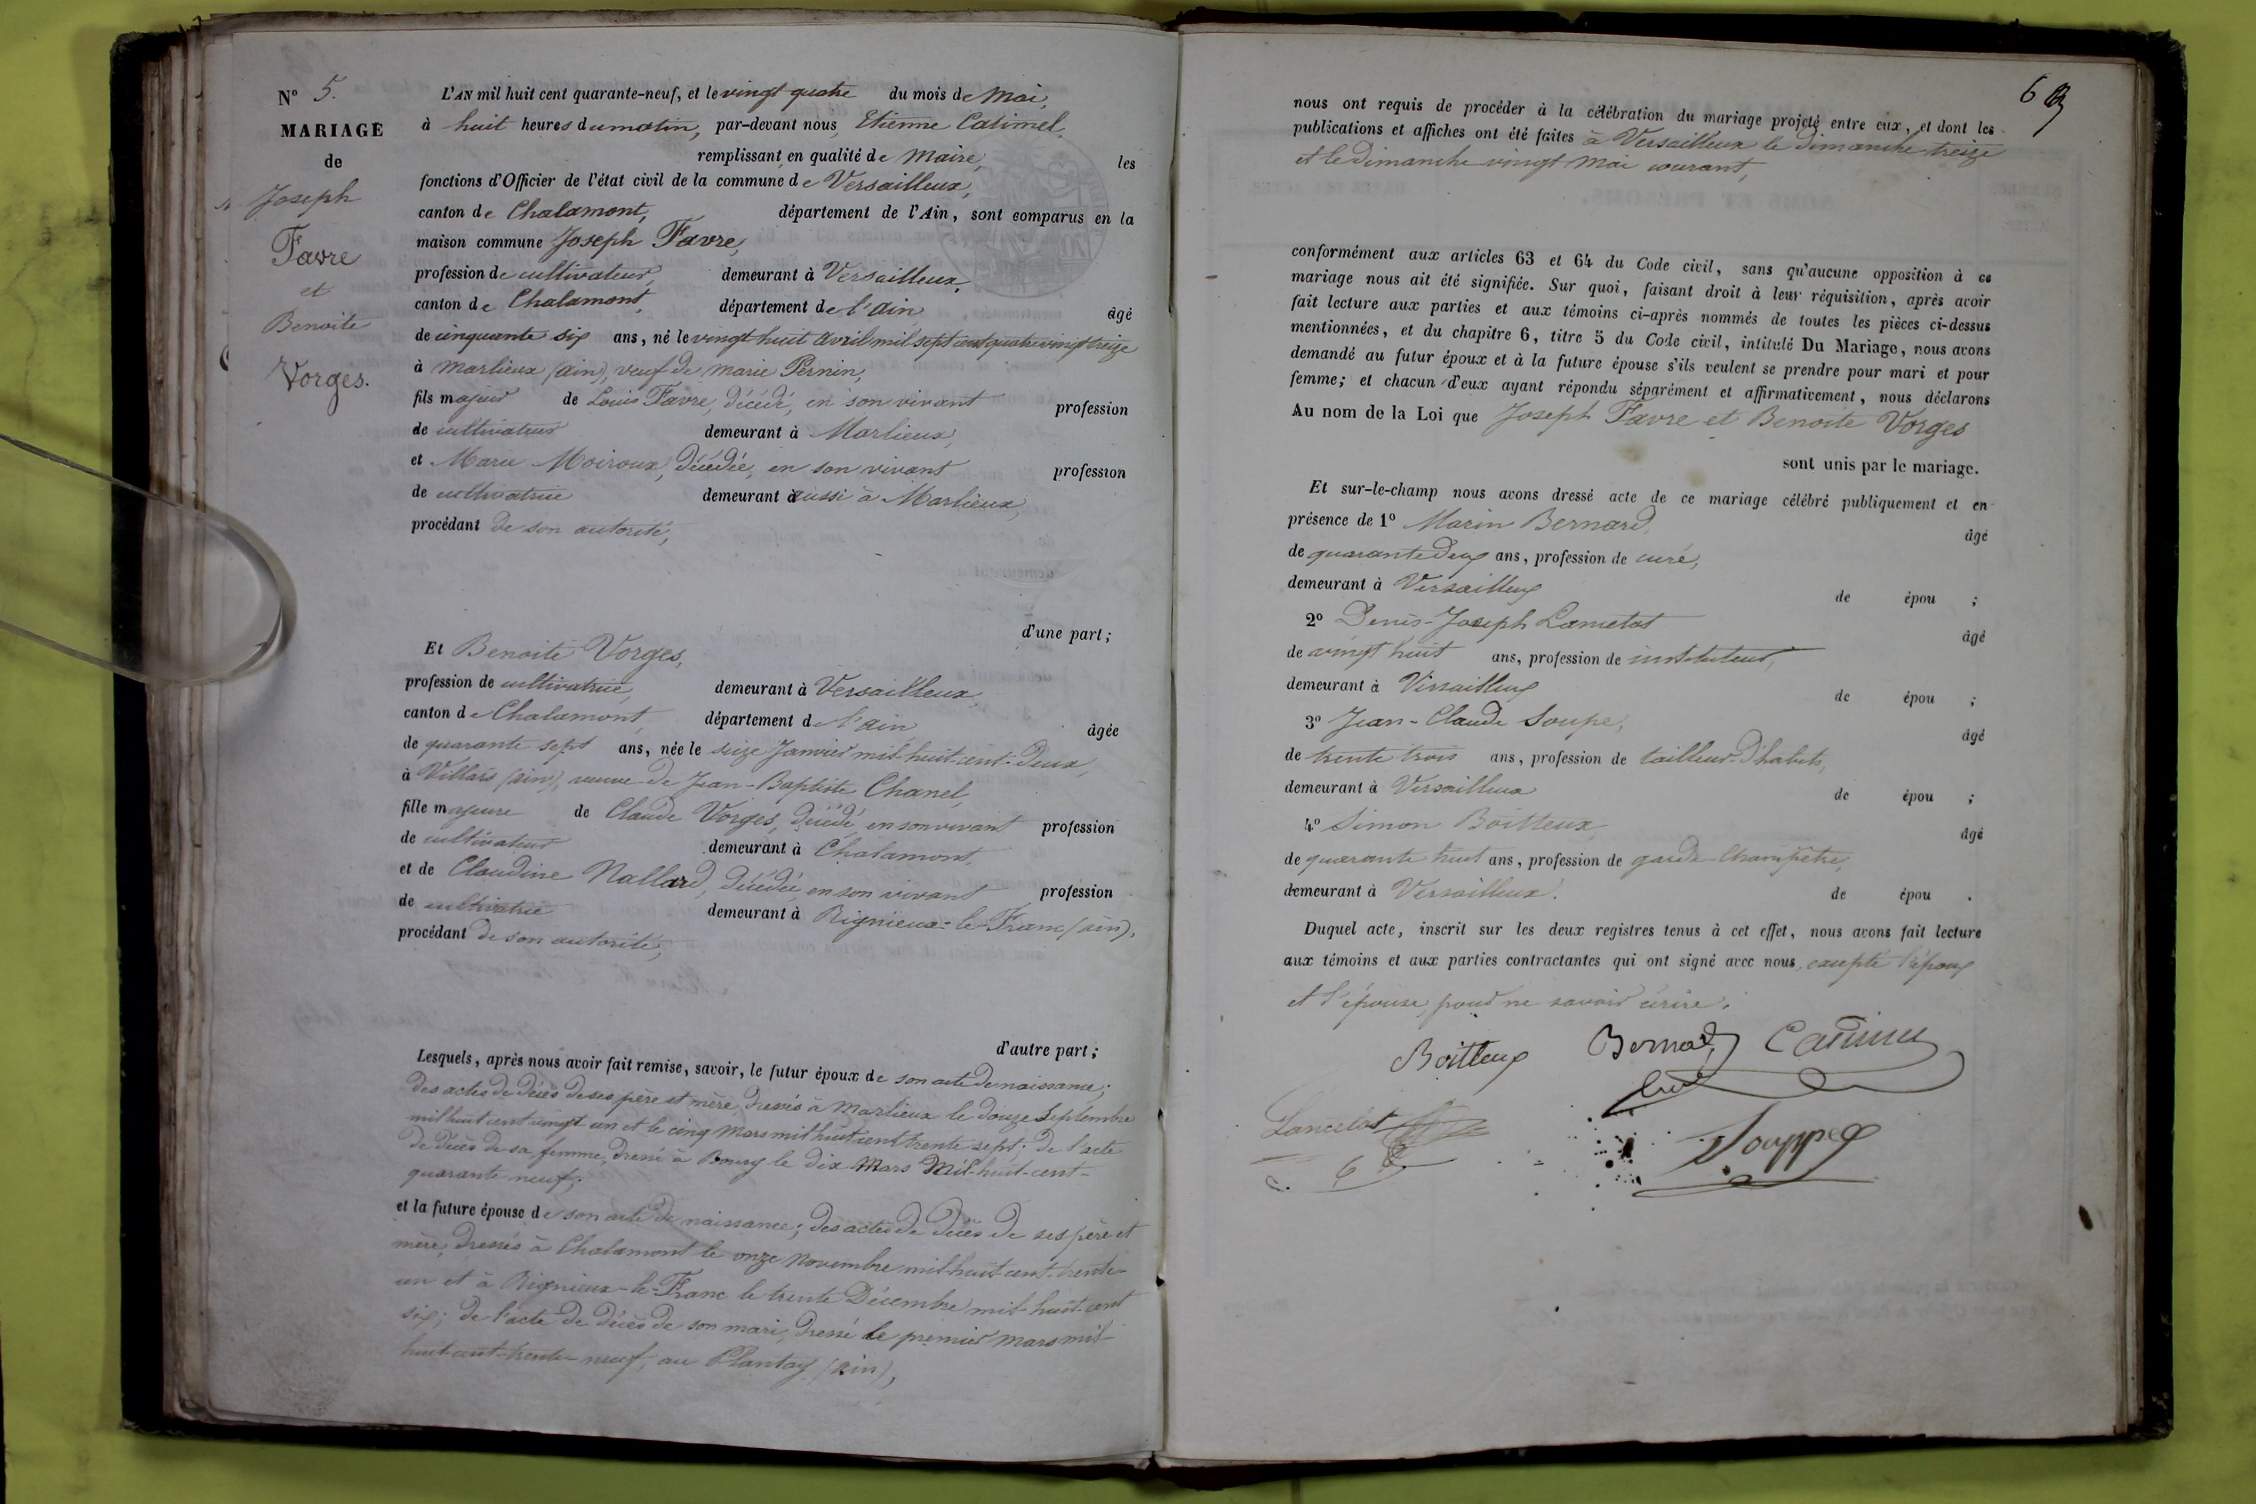 N° 5.
MARIAGE
de
Joseph
Favre
et
Benoite
Vorges.
L'AN mil huit cent quarante-neuf, et le vingt quatre du mois de Mai,
à huit heures du matin, par-devant nous, Etienne
remplissant en qualité de Maire, les
fonctions d'Officier de l'état civil de la commune de Versailleux,
canton de Chalamont, département de l'Ain, sont comparus en la
maison commune Joseph Favre,
profession de cultivateur, demeurant à Versailleux,
canton de Chalamont, département de l'ain âgé
de cinquante six ans, né le vingt huit avril mil sept cent quatre vingt treize
à Marlieux (ain), veuf de Marie Pernin,
fils majeur de Louis Favre, décédé, en son vivant profession
de cultivateur demeurant à Marlieux,
et Marie Moiroux, décédée, en son vivant profession
de cultivatrice demeurant aussi à Marlieux,
procédant de son autorité,
d'une part;
Et Benoite Vorges,
profession de cultivatrice, demeurant à Versailleux,
canton de Chalamont, département de l'ain, âgée
de quarante sept ans, née le seize Janvier mil-huit-cent-deux,
à Villars (ain), veuve de Jean-Baptiste Chanel,
fille majeure de Claude Vorges, décédé, en son vivant profession
de cultivateur demeurant à Chalamont,
et de Claudine Nallard, décédée, en son vivant profession
de cultivatrice demeurant à Rignieux-le-Franc (ain),
procédant de son autorité,
d'autre part;
Lesquels, après nous avoir fait remise, savoir, le futur époux de son acte de naissance;
des actes de décès de ses père et mère, dressés à Marlieux le douze Septembre
mil huit cent vingt un et le cinq Mars mil huit cent trente sept; de l'acte
de décès de sa femme, dressé à Bourg le dix Mars Mil-huit-cent-
quarante neuf;
et la future épouse de son acte de naissance; des actes de décès de ses père et
mère, dressés à Chalamont le onze Novembre mil-huit cent-trente-
un et à Rignieux-le-Franc le trente Décembre mil-huit-cent
six; de l'acte de décès de son mari, dressé le premier Mars mil-
huit-cent-trente-neuf, au Plantay (ain),
63
nous ont requis de procéder à la célébration du mariage projeté entre eux, et dont les
publications et affiches ont été faites à Versailleux le dimanche treize
et le Dimanche vingt Mai courant,
conformément aux articles 63 et 64 du Code civil, sans qu'aucune opposition à ce
mariage nous ait été signifiée. Sur quoi, faisant droit à leur réquisition, après avoir
fait lecture aux parties et aux témoins ci-après nommés de toutes les pièces ci-dessus
mentionnées, et du chapitre 6, titre 5 du Code civil, intitulé Du Mariage, nous avons
demandé au futur époux et à la future épouse s'ils veulent se prendre pour mari et pour
femme; et chacun d'eux ayant répondu séparément et affirmativement, nous déclarons
Au nom de la Loi que Joseph Favre et Benoite Vorges
sont unis par le mariage.
Et sur-le-champ nous avons dressé acte de ce mariage célébré publiquement et en
présence de 1° Marin Bernard, âgé
de quarante deux ans, profession de curé,
demeurant à Versailleux de épou ;
2° Denis-Joseph Lancelot âgé
de vingt huit ans, profession de instituteur,
demeurant à Versailleux de épou ;
3° Jean-Claude Soupe, âgé
de trente trois ans, profession de tailleur-d'habits,
demeurant à Versailleux de épou ;
4° Simon Boitteux âgé
de quarante huit ans, profession de garde-champêtre,
demeurant à Versailleux. de épou .
Duquel acte, inscrit sur les deux registres tenus à cet effet, nous avons fait lecture
aux témoins et aux parties contractantes qui ont signé avec nous, excepté l'époux
et l'épouse, pour ne savoir écrire.
Boitteux Bernard
curé
Lancelot
Souppe